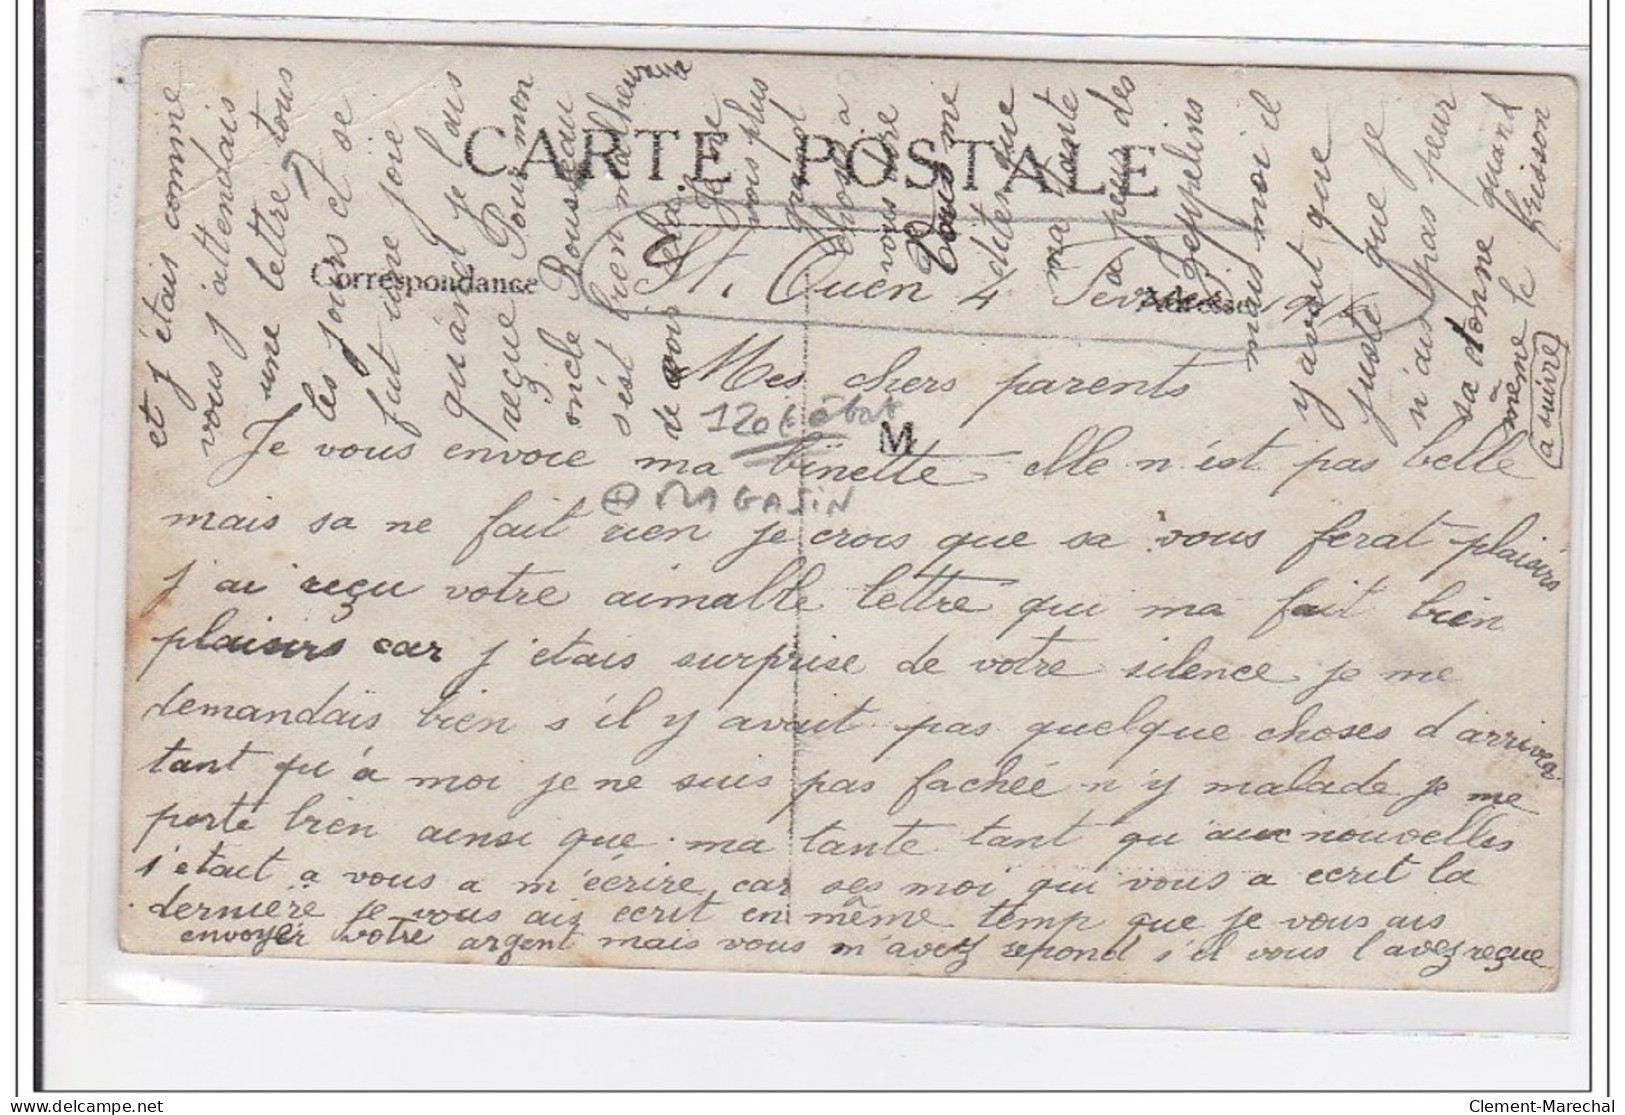 CARTE POSTALE
Correspondance
Adresse
St. Ouen 4
Mes chers parents
120€ état
M
⊕ MAGASIN
Je vous envoie ma binette elle n'est pas belle
mais sa ne fait rien je crois que sa vous ferat plaisirs
j'ai reçu votre aimable lettre qui ma fait bien
plaisirs car j'etais surprise de votre silence je me
demandaïs bien s'il y avait pas quelque choses d'arriver
tant qu'à moi je ne suis pas fachée n'y malade je me
porte bien ainsi que ma tante tant qu'aux nouvelles
s'etait a vous a m'écrire car ses moi qui vous a ecrit la
dernière je vous ais ecrit en même temp que je vous ais
envoyer votre argent mais vous m'avez repond s'il vous l'avez reçue
et j'étais comme
vous j'attendais
une lettre tous
les jours et se
fut une joie
quand je l'ais
reçue Pour mon
oncle Rousseau
s'est bien malheureux
de voir cela. Je ne
vois plus
grand
chose à
vous dire
Tous me
dites que
ma tante
a peur des
zeppelins
mais moi il
y avait que
juste que je
n'ais pas peur
sa donne quand
même le frisson
a suivre
Clement-Marechal